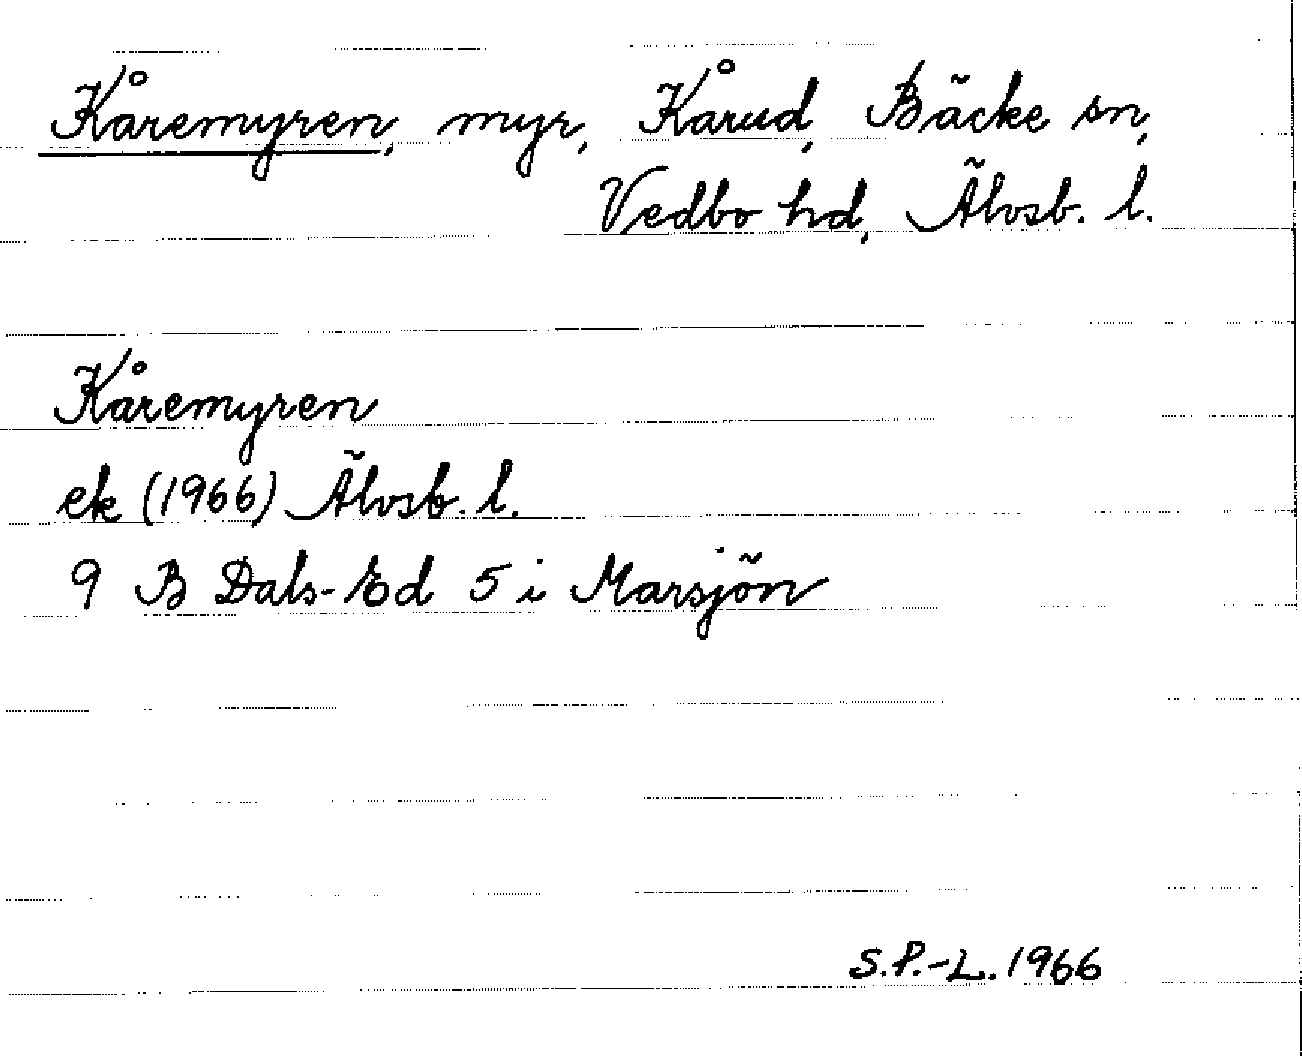 Kåremyren, myr, Kårud, Bäcke sn,
Vedbo hd, Älvsb. l.
Kåremyren
ek (1966) Älvsb. l.
9 B Dals-Ed 5 i Marsjön
S.P.-L. 1966